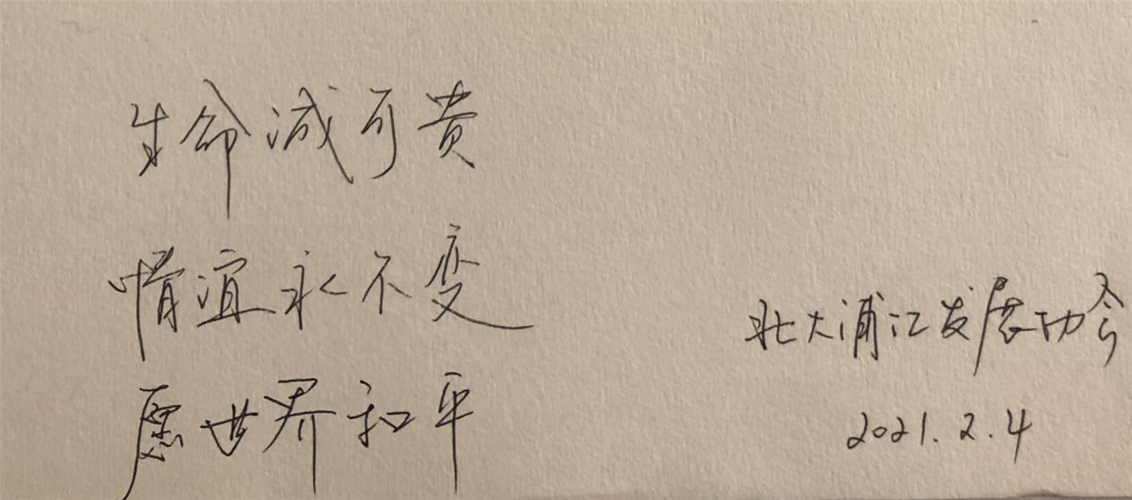 生命减可贵
情谊永不变
愿世界和平
北大浦江发展协会
2021.2.4